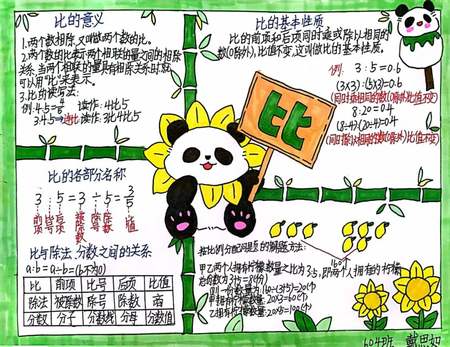 比的意义
1.两个数相除,又叫做两个数的比。
2.两个数的比表示两个相联的量之间的相除
关系,当两个相联的量具有相除关系时,就
可以用"比"来表示。
3.比的读写法:
例:4:5= 读作:4比5
3:4:5⇒连比 读作:3比4比5
比的基本性质
比的前项和后项同时乘或除以相同的
数(0除外),比值不变,这叫做比的基本性质。
例: 3:5=0.6
(3×3):(5×3)=0.6
(同时乘相同的数(0除外)比值不变)
8:20=0.4
(8÷4):(20÷4)=0.4
(同时除以相同的数(0除外)比值不变)
比
比的各部分名称
3 : 5 = 3 ÷ 5 = 3/5
前项 比号 后项 被除数 除号 除数 比值
比与除法、分数之间的关系
a:b=a÷b= (b≠0)
比 前项 比号 后项 比值
除法 被除数 除号 除数 商
分数 分子 分数线 分母 分数值
按比例分配问题的解题方法:
160个
甲乙两个人拥有柠檬数量之比为3:5,即两个人拥有的柠檬
总份数为3+5=8(份)
则一份数量为:160÷(3+5)=20(个)
甲拥有柠檬数量:20×3=60(个)
乙拥有柠檬数量:20×5=100(个)
604班 戴思如